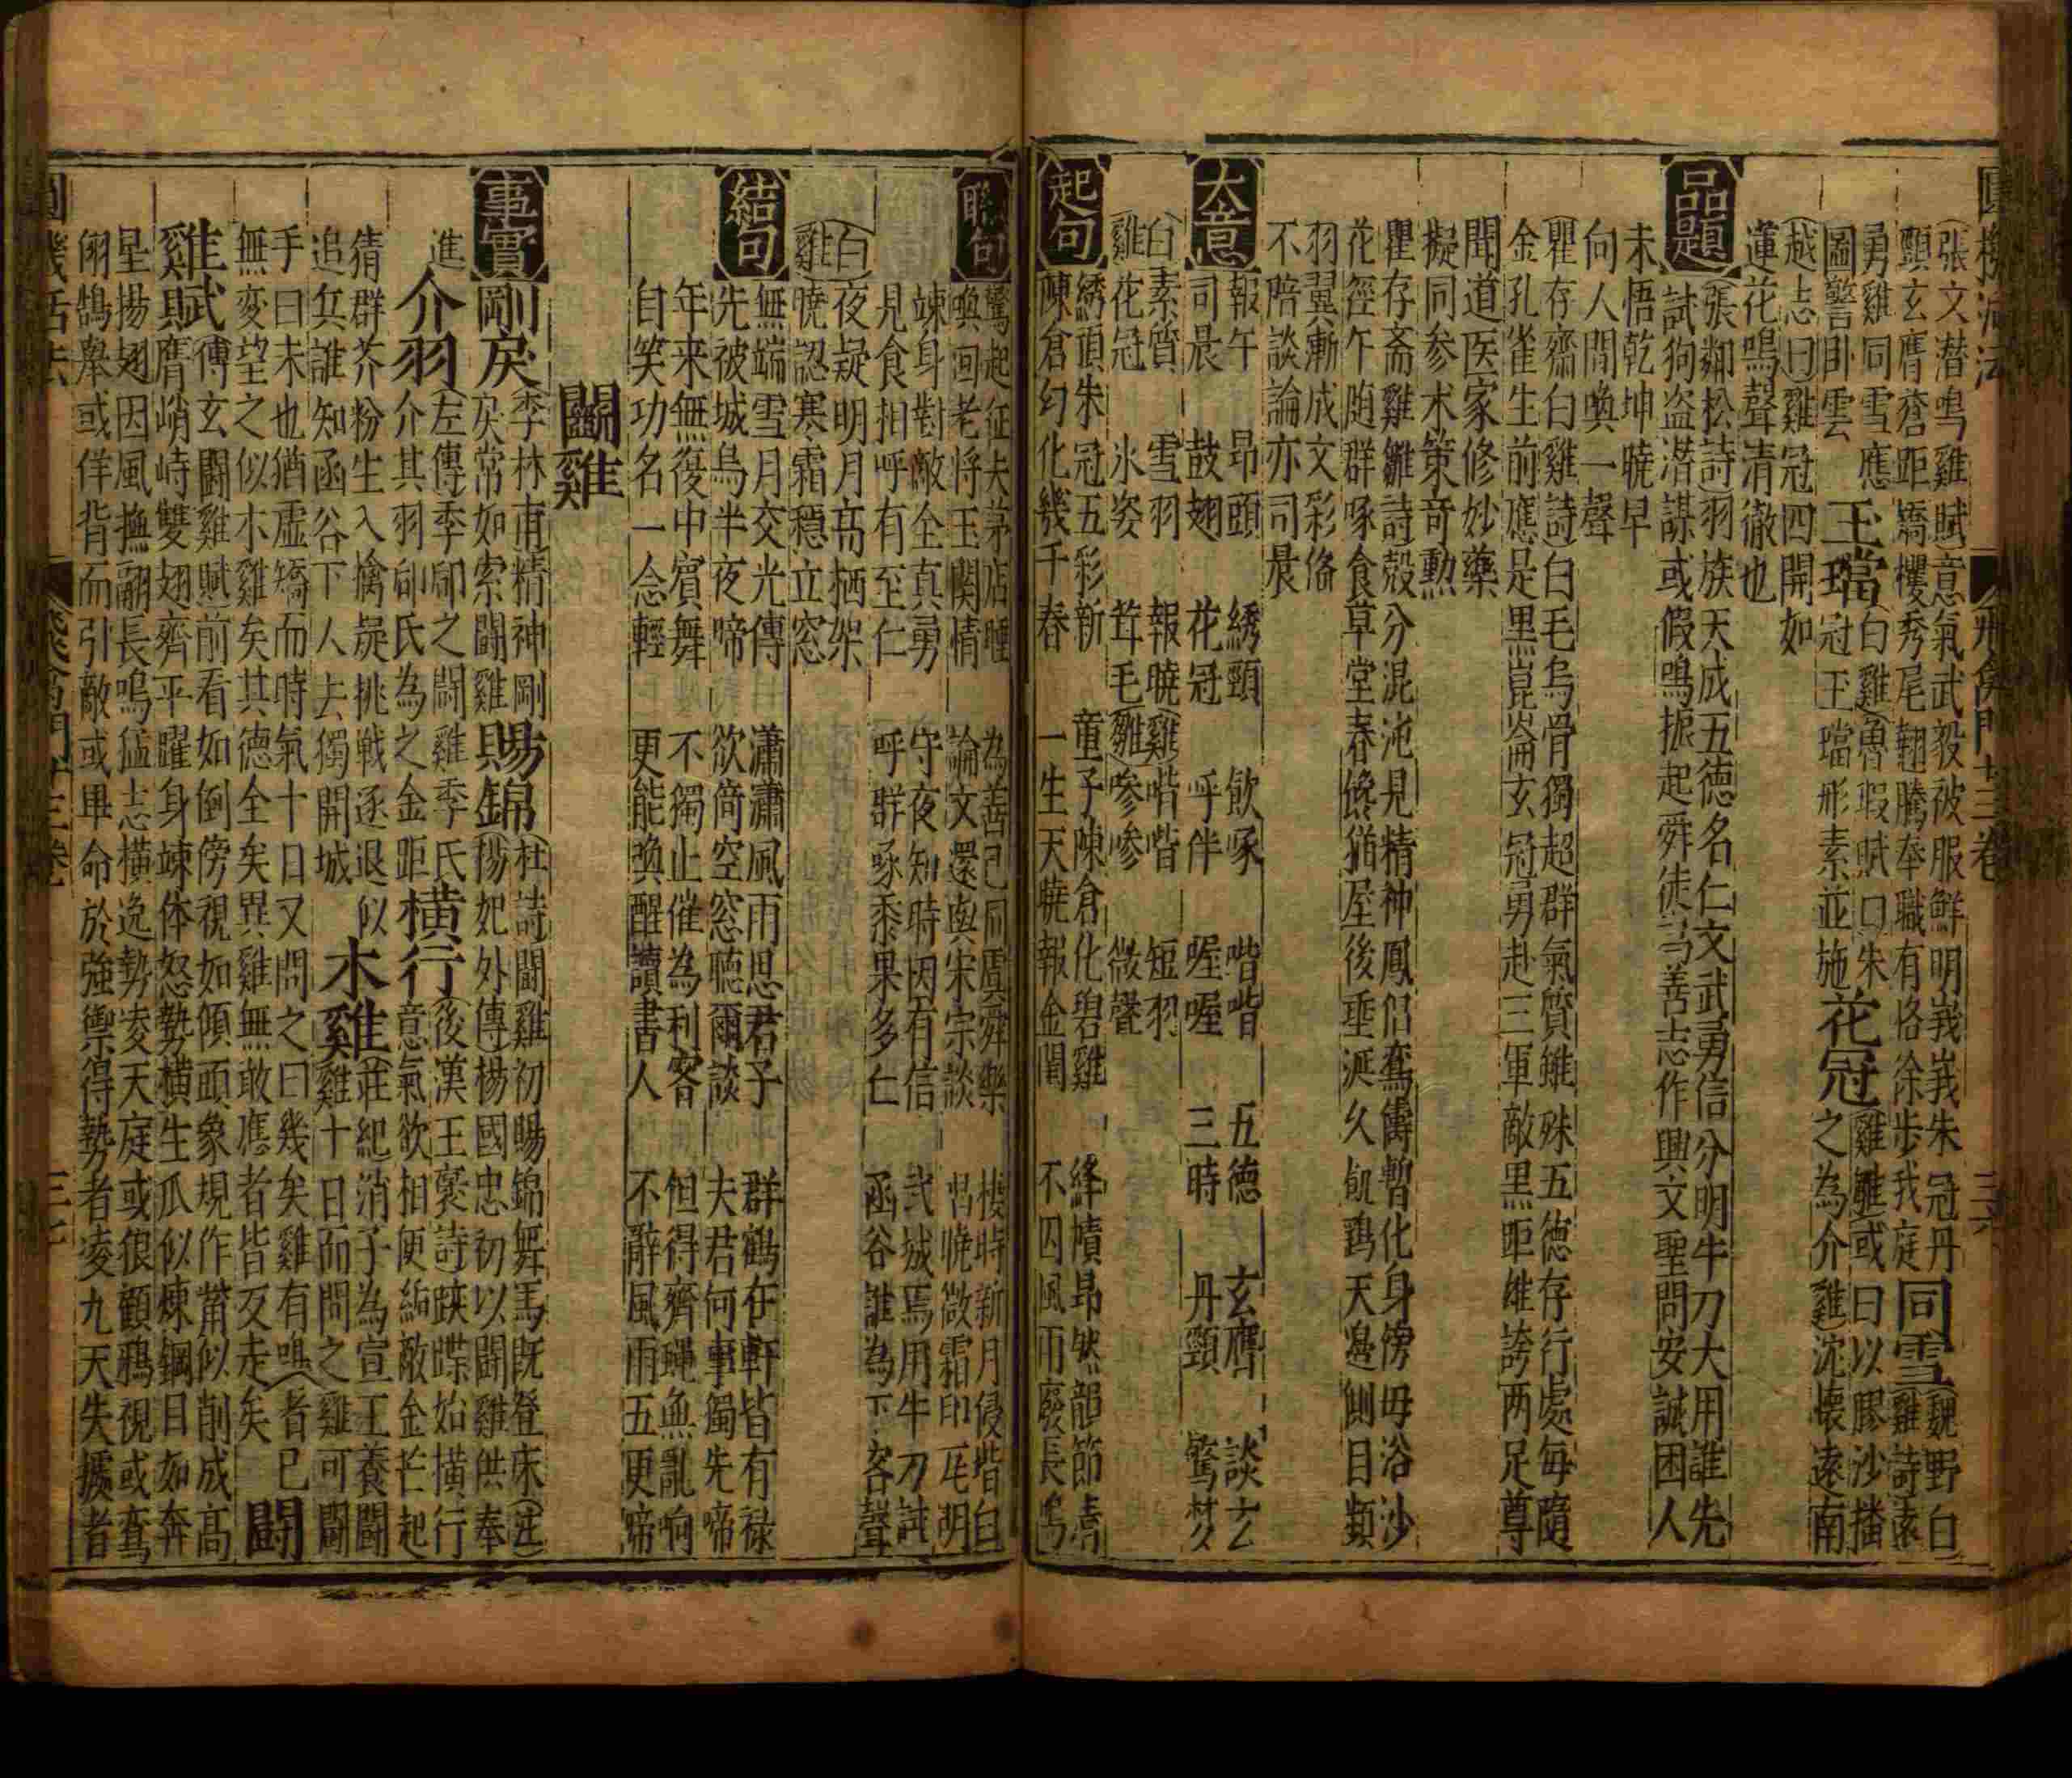 張文潜鳴雞賦意氣武毅被服鮮明峩峩朱冠丹
頸玄膺蒼距矯攫秀尾翹騰奉職有恪徐步我庭
同雪
魏野白
雞詩遠
勇雞同雪應
圖警卧雲
玉璫
白雞魯瑕賦口朱
冠玉璫形素並施
花冠
雞雛或曰以膠沙播
之為介雞沈懷遠南
越志曰雞冠四開如
蓮花鳴聲清徹也
品題
張鄰松詩羽族天成五德名仁文武勇信分明牛刀大用誰先
試狗盗潜謀或假鳴振起舜徒為善志作興文聖問安誠困人
未悟乾坤曉早
向人間喚一聲
瞿存齋白雞詩白毛烏骨獨超群氣質雖殊五德存行處每隨
金孔雀生前應是黒崑崙玄冠勇赴三軍敵黒距雄誇两足尊
聞道医家修妙藥
擬同参术策竒勲
瞿存斋雞雛詩殻分混沌見精神鳳侣鴛儔暫化身傍毋浴沙
花徑午随群啄食草堂春俻猶屋後垂涎久飢鹞天邉側目頻
羽翼漸成文彩俻
不陪談論亦司晨
大意
報午 昂頭 綉頸 飲啄 喈喈 五德 玄膺 談玄
司晨 鼓翅 花冠 呼伴 喔喔 三時 丹頸 驚梦
白雞
素質 雪羽 報曉
花冠 氷姿 茸毛
雞雛
喈喈 短羽
嘇嘇 微聲
起句
綉頂朱冠五彩新 童子陳倉化碧雞 絳幘昂然韻節清
陳倉幻化幾千春 一生天曉報金閨 不因風雨廢長鳴
聫句
驚起征夫茅店睡 為善已同虞舜樂 棲時新月侵堦白
喚回老将玉関情 論文還與宋宗談 唱曉微霜印瓦明
竦身對敵全真勇 守夜知時因有信 武城焉用牛刀試
見食相呼有至仁 呼群啄黍果多仁 函谷誰為下客聲
白雞
夜疑明月髙栖架
曉認寒霜穏立窓
結句
無端雪月交光傳 瀟瀟風雨思君子 群鶴在軒皆有禄
先被城烏半夜啼 欲倚空窓聴爾談 夫君何事獨先啼
年来無復中宵舞 不獨止催為利客 但得齊蠅無亂响
自笑功名一念輕 更能喚醒讀書人 不辭風雨五更啼
鬭雞
事實
剛戾
季林甫精神剛
戾常如索闘雞
賜錦
杜詩闘雞初賜錦舞馬既登床注
楊妃外傳楊國忠初以闘雞供奉
進
介羽
左傳季郈之闘雞季氏
介其羽郈氏為之金距
横行
後漢王褒詩踥蹀始横行
意氣欲相便紿敵金芒起
猜群芥粉生入擒疑挑戦逐退似
追兵誰知函谷下人去獨開城
木雞
莊紀消子為宣王養闘
雞十日而問之雞可闘
手曰未也猶虛矯而時氣十日又問之曰幾矣雞有鳴者已
無変望之似木雞矣其德全矣異雞無敢應者皆反走矣
闘
雞賦
傅玄闘雞賦前看如倒傍視如傾頭象規作觜似削成髙
膺峭峙雙翅齊平躍身竦体怒勢横生爪似煉鋼目如奔
星揚翅因風撫翮長鳴猛志横逸勢凌天庭或很顧鴉視或鸞
翎鵠舉或佯背而引敵或畢命於強禦得勢者凌九天失㩀者